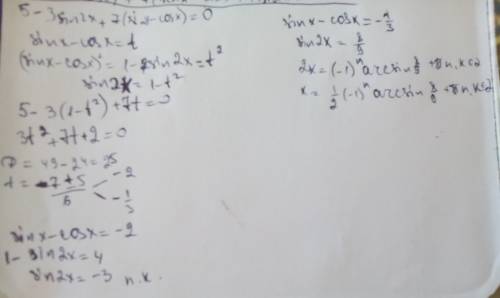 5 - 3sin2x + 7(sinx-cosx)=0
sinx-cosx=t
(sinx-cosx)² = 1-sin2x=t²
sin2x=1-t²
5-3(1-t²)+7t=0
3t²+7t+2=0
D=49-24=25
t= (-7±5)/6 < -2, -1/3
sinx-cosx=-2
1-sin2x=4
sin2x=-3 п.к.
sinx-cosx=-1/3
sin2x=8/9
2x=(-1)ⁿ arcsin 8/9 +πn, n∈Z
x=1/2(-1)ⁿ arcsin 8/9 +